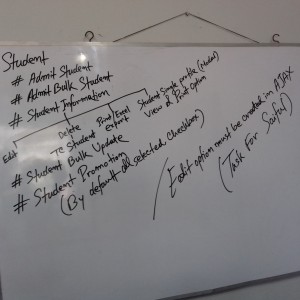 Student
# Admit Student
# Admit Bulk Student
# Student Information
Edit
Delete
Te Student
Print Excel
export
Student Single profile
View & Print Option
# Student Bulk Update
# Student Promotion
(By default all selected checkbox)
Edit option must be created in AJAX
(Task For Saiful)